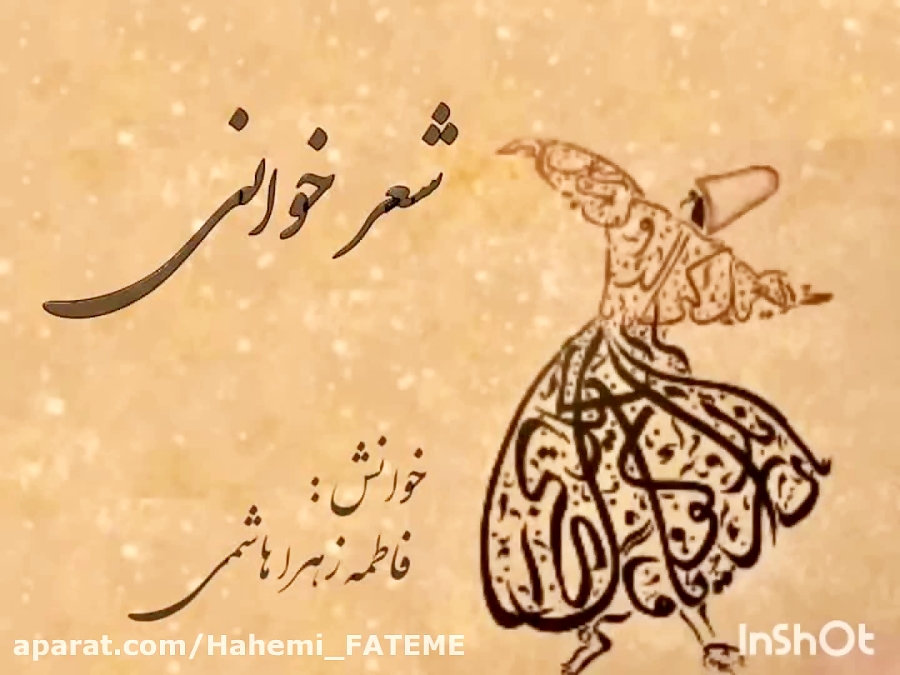 شعر خوانی
خوانش :
فاطمه زهرا هاشمی
aparat.com/Hahemi_FATEME
InShOt